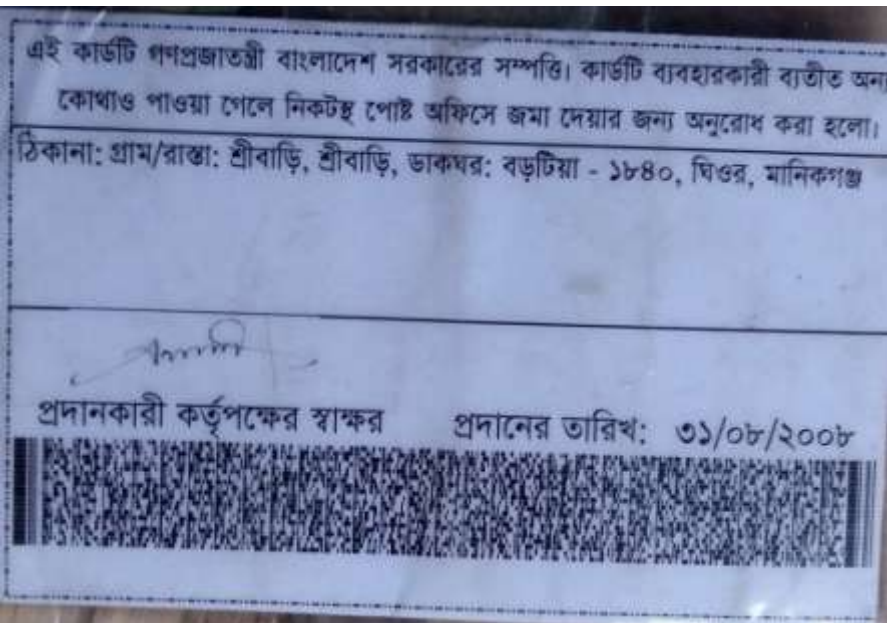 এই কার্ডটি গণপ্রজাতন্ত্রী বাংলাদেশ সরকারের সম্পত্তি। কার্ডটি ব্যবহারকারী ব্যতীত অন্য
কোথাও পাওয়া গেলে নিকটস্থ পোষ্ট অফিসে জমা দেয়ার জন্য অনুরোধ করা হলো।
ঠিকানা: গ্রাম/রাস্তা: শ্রীবাড়ি, শ্রীবাড়ি, ডাকঘর: বড়টিয়া - ১৮৪০, ঘিওর, মানিকগঞ্জ
প্রদানকারী কর্তৃপক্ষের স্বাক্ষর প্রদানের তারিখ: ৩১/০৮/২০০৮